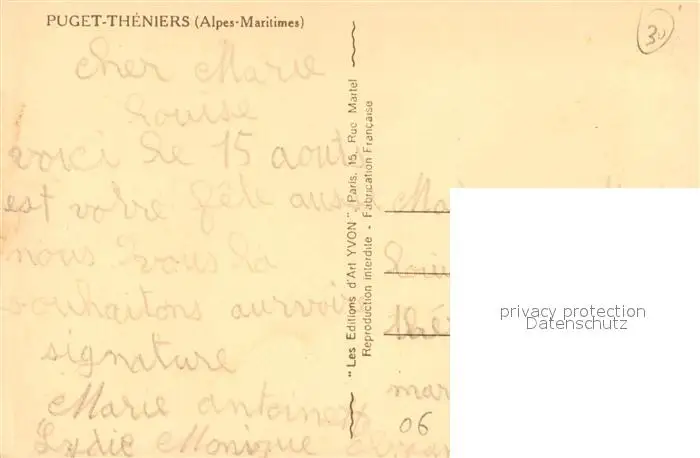 PUGET-THÉNIERS (Alpes-Maritimes)
30
cher Marie
Louise
voici le 15 aout
est votre fête aussi
nous vous la
souhaitons aurvoir
signature
Marie antoinette
Lydie Monique
"Les Editions d'Art YVON", Paris, 15, Rue Martel
Reproduction interdite - Fabrication Française
Loui
thé
mar
06
privacy protection
Datenschutz